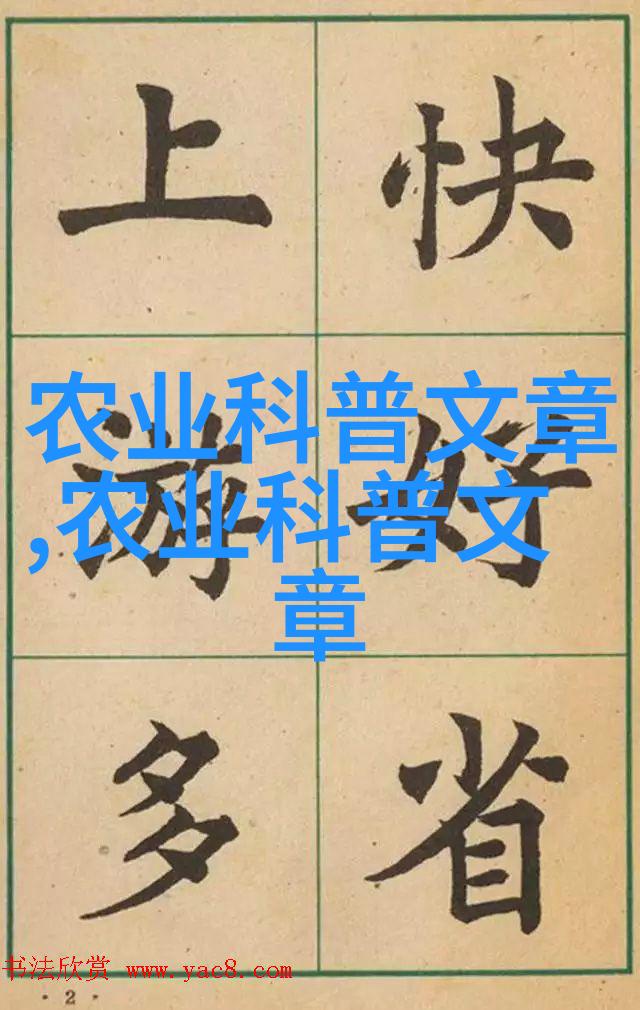 上游多
快好省
农业科普文章
,农业科普文
章
书法欣赏 www.yac8.com
· 2 ·